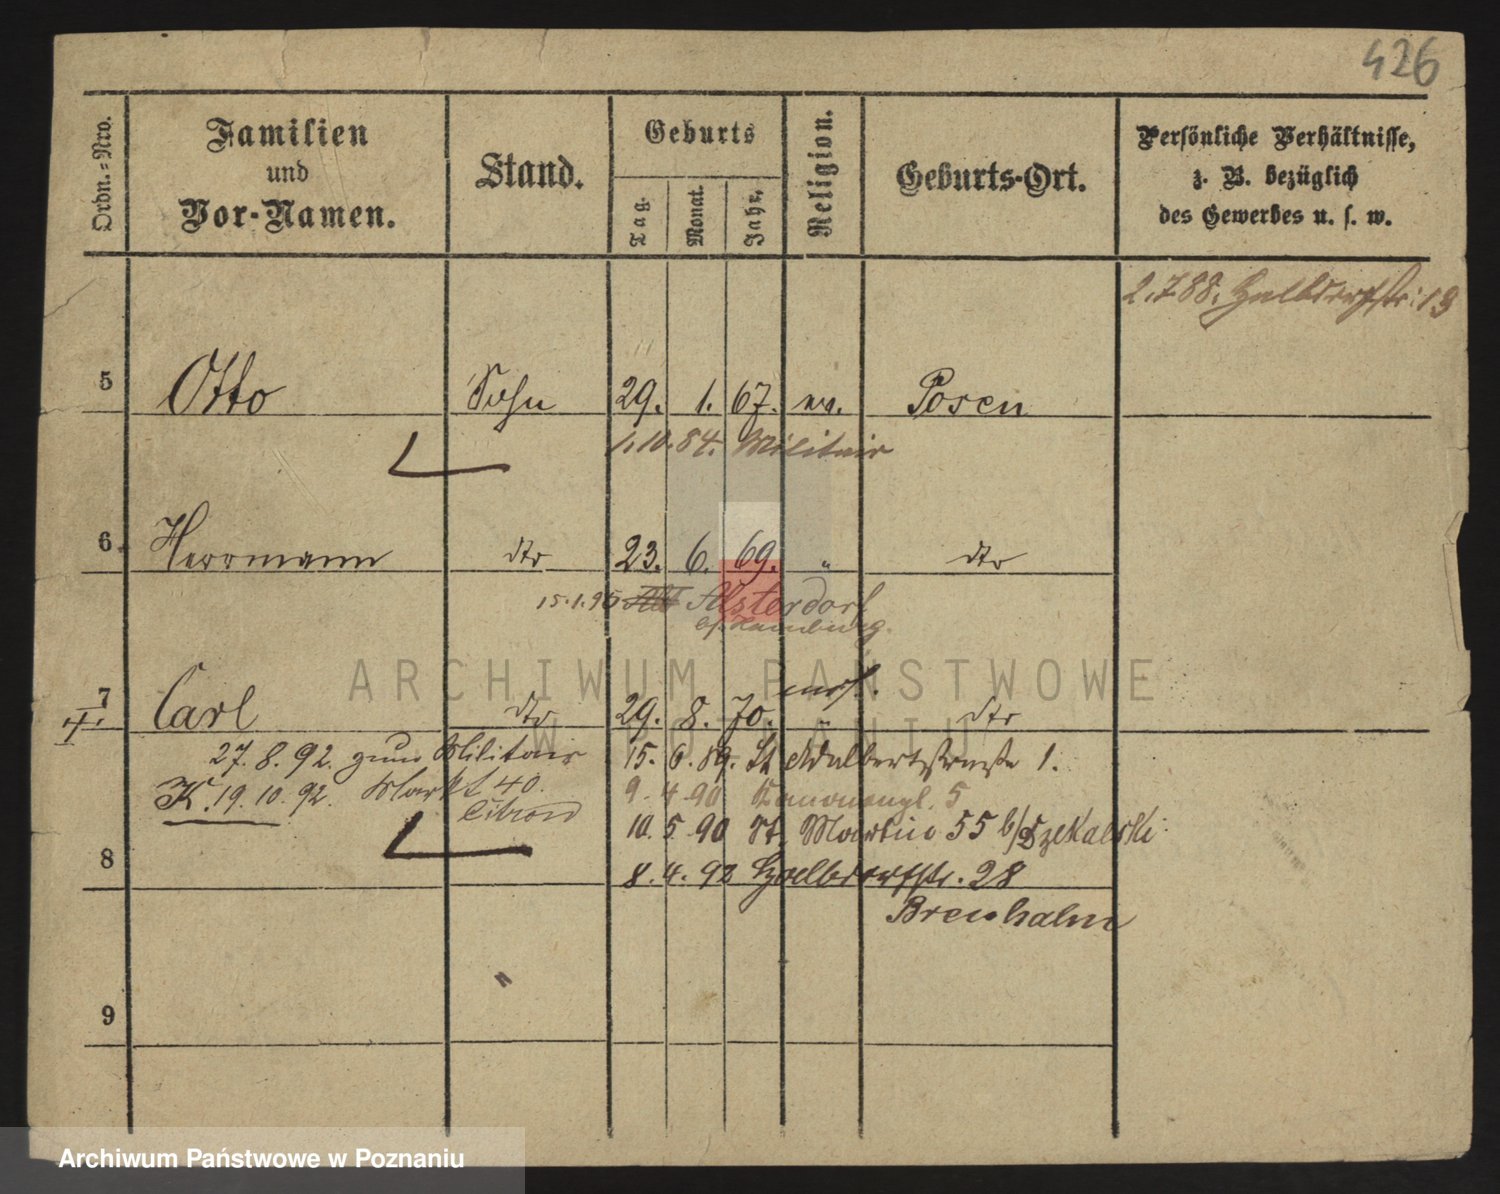 426
Ordn.=Nro.
Familien
und
Vor-Namen.
Stand.
Geburts
Tag.
Monat.
Jahr.
Religion.
Geburts-Ort.
Persönliche Verhältnisse,
z. B. bezüglich
des Gewerbes u. s. w.
2.7.88. Halbdorfstr: 13
5 Otto Sohn 29. 1. 67. ev. Posen
1.10.84. Militair
6. Herrmann dto 23. 6. 69. " dto
15.1.95 Alsterdorf
b/Hamburg.
7 Carl dto 29. 8. 70. dto
27.8.92. zum Militair 15. 6. 89. St Adalbertstraße 1.
K. 19.10.92. Markt 40. 9. 4 90 Kanonenpl. 5
10. 5. 90 St. Martin 55 b/Dzekalski
8 8. 4. 92 Halbdorfstr. 28
9
ARCHIWUM PAŃSTWOWE
W POZNANIU
Archiwum Państwowe w Poznaniu